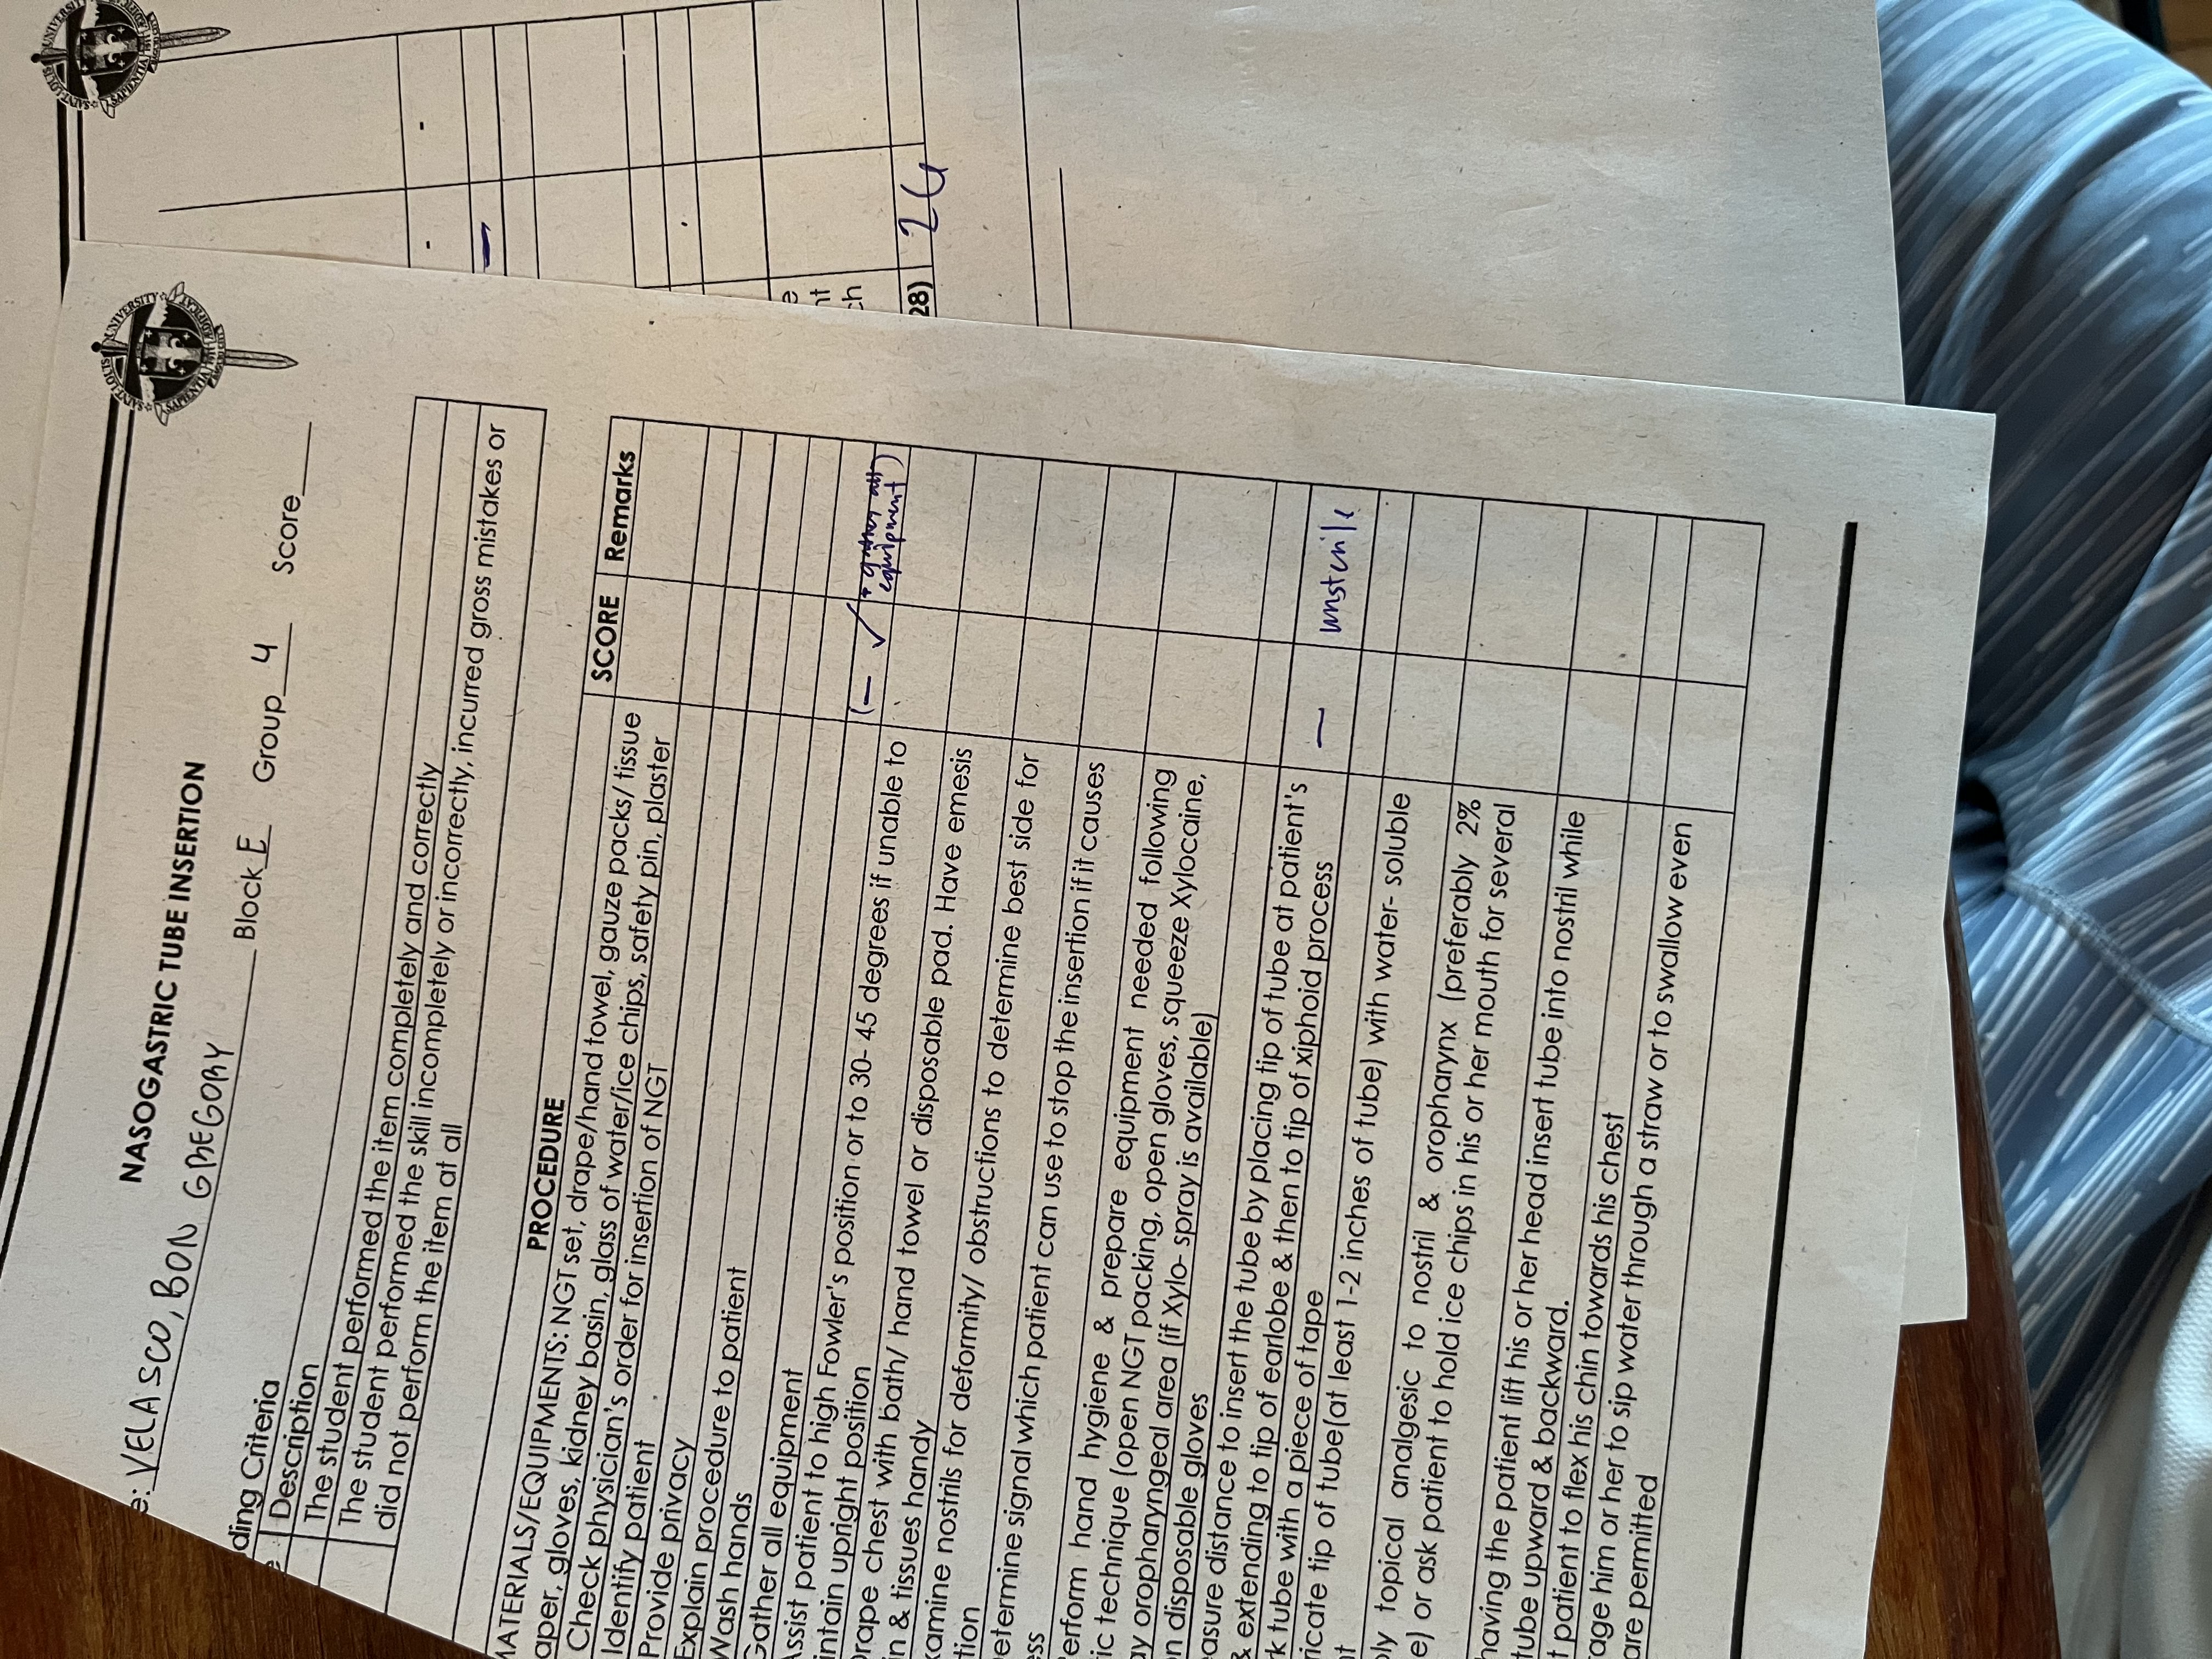 NASOGASTRIC TUBE INSERTION
e: VELASCO, BON GREGORY Block E Group 4 Score
ding Criteria
e Description
The student performed the item completely and correctly
The student performed the skill incompletely or incorrectly, incurred gross mistakes or
did not perform the item at all
PROCEDURE SCORE Remarks
MATERIALS/EQUIPMENTS: NGT set, drape/hand towel, gauze packs/ tissue
aper, gloves, kidney basin, glass of water/ice chips, safety pin, plaster
Check physician's order for insertion of NGT
Identify patient
Provide privacy
Explain procedure to patient
Wash hands
Gather all equipment
Assist patient to high Fowler's position or to 30- 45 degrees if unable to
intain upright position
(— ✓ gather all
equipment)
Drape chest with bath/ hand towel or disposable pad. Have emesis
in & tissues handy
xamine nostrils for deformity/ obstructions to determine best side for
tion
etermine signal which patient can use to stop the insertion if it causes
ess
Perform hand hygiene & prepare equipment needed following
ic technique (open NGT packing, open gloves, squeeze Xylocaine,
ay oropharyngeal area (if Xylo- spray is available)
on disposable gloves
easure distance to insert the tube by placing tip of tube at patient's
& extending to tip of earlobe & then to tip of xiphoid process
— unsterile
rk tube with a piece of tape
ricate tip of tube(at least 1-2 inches of tube) with water- soluble
nt
ply topical analgesic to nostril & oropharynx (preferably 2%
e) or ask patient to hold ice chips in his or her mouth for several
having the patient lift his or her head insert tube into nostril while
tube upward & backward.
t patient to flex his chin towards his chest
rage him or her to sip water through a straw or to swallow even
are permitted
SAINT LOUIS UNIVERSITY
SAPIENTIA ÆDIFICAT
1911
BAGUIO CITY
- -
—
e
nt
ch
28) 24